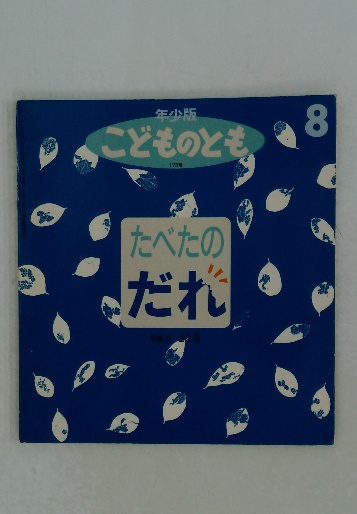 年少版
こどものとも
8
たべたの
だれ